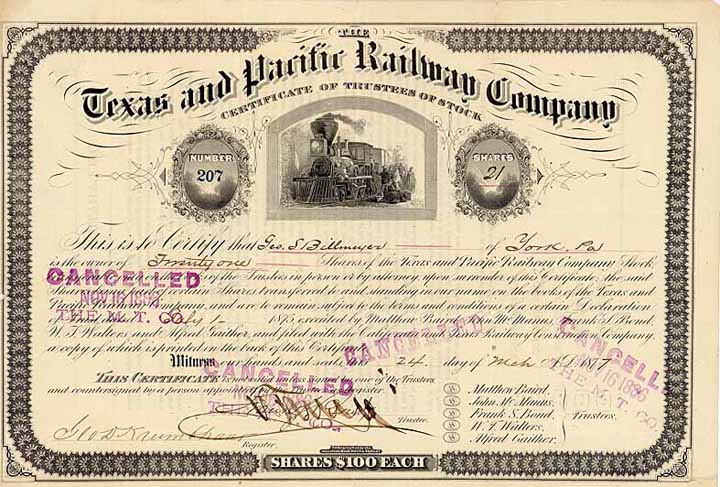 THE
Texas and Pacific Railway Company
CERTIFICATE OF TRUSTEES OF STOCK
NUMBER
207
SHARES
21
This is to Certify that Geo. S. Billmeyer of York, Pa
is the owner of Twenty one Shares of the Texas and Pacific Railway Company Stock,
of the Trustees in person or by attorney upon surrender of this Certificate, the said
Shares transferred to and standing in our name on the books of the Texas and
and are to remain subject to the terms and conditions of a certain Declaration
1875 executed by Matthew Baird, John Mc Manus, Frank S. Bond,
W. T. Walters, and Alfred Gaither, and filed with the California and Texas Railway Construction Company,
a copy of which is printed on the back of this Certificate
Witness our hands and seals 24 day of Mch 1877
THIS CERTIFICATE is not valid unless signed by one of the Trustees
and countersigned by a person appointed
Register.
Trustee.
Matthew Baird,
John Mc Manus,
Frank S. Bond,
W. T. Walters,
Alfred Gaither.
Trustees.
SHARES $100 EACH
CANCELLED
NOV 16 1886
THE M. T. CO.
CANCELLED
CANCELLED
CO.
CANCELL
16 1886
THE M. T. CO.